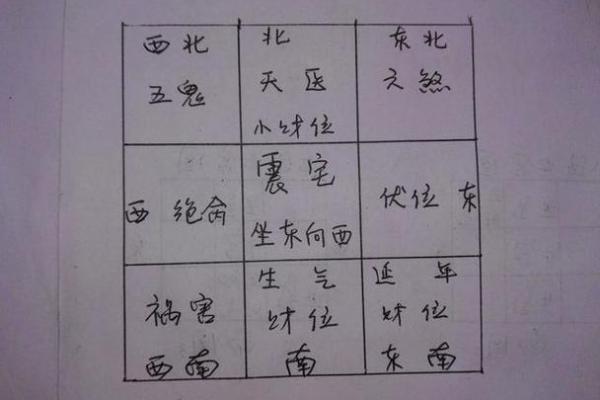 西北
五鬼
北
天医
小财位
东北
六煞
西 绝命
震宅
坐东向西
伏位 东
祸害
西南
生气
财位
南
延年
财位
东南